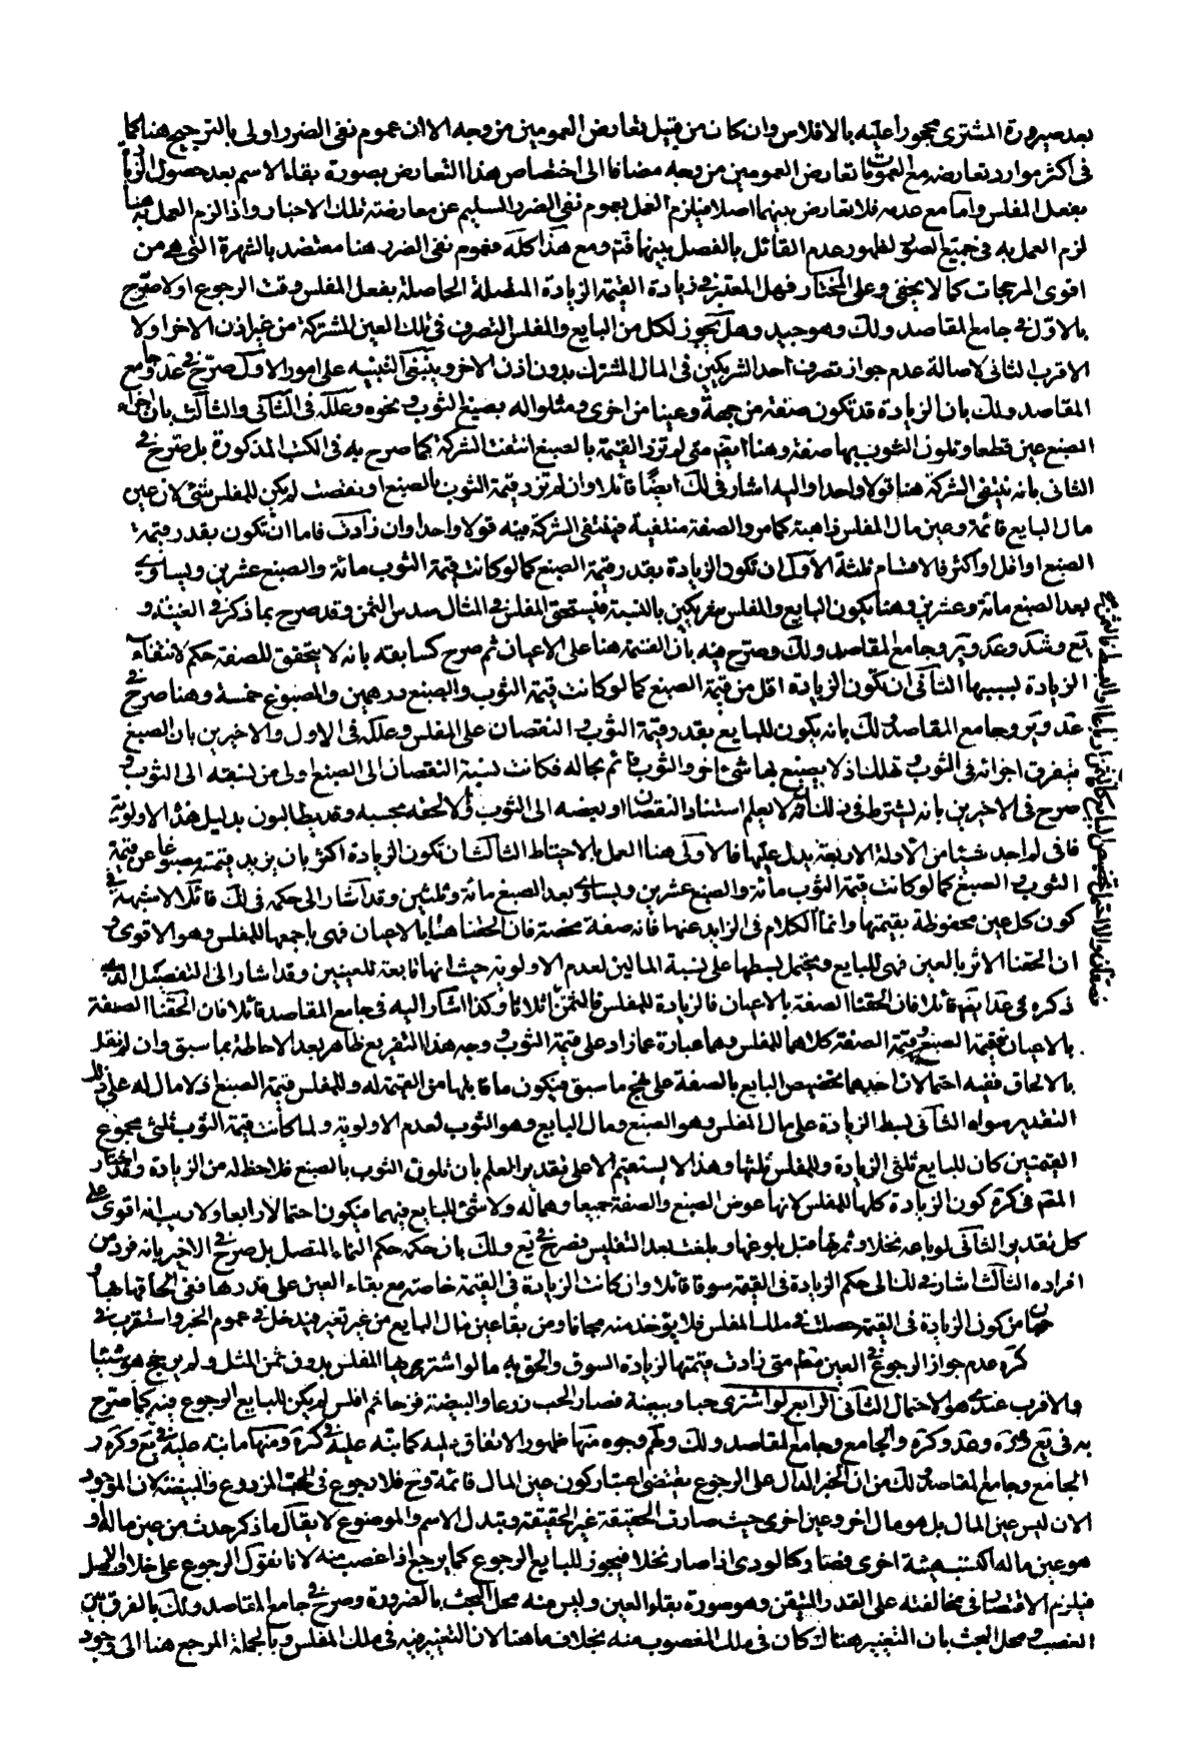 بعد صيرورة المشترى محجورا عليه بالافلاس وان كان من قبيل تعارض العمومين من وجه الا ان عموم نفى الضرر اولى بالترجيح هنا كما
فى اكثر موارد تعارضه مع العمومات تعارض العمومين من وجه مضافا الى اختصاص هذا التعارض بصورة بقاء الاسم بعد حصول الزيادة
بفعل المفلس واما مع عدمه فلا تعارض بينهما اصلا فيلزم العمل بعموم نفى الضرر السليم عن معارضته تلك الاخبار واذا لزم العمل به هنا
لزم العمل به فى جميع الصور لظهور عدم القائل بالفصل بينهما فتم ومع هذا كله فعموم نفى الضرر هنا معتضد بالشهرة التى هى من
اقوى المرجحات كما لا يخفى وعلى المختار فهل المعتبر فى زيادة القيمة الزيادة المتصلة الحاصلة بفعل المفلس وقت الرجوع او لا صرّح
بالاوّل فى جامع المقاصد ولك وهو جيد وهل يجوز لكل من البايع والمفلس التصرف فى تلك العين المشتركة من غير اذن الاخر او لا
الاقرب الثانى لاصالة عدم جواز تصرف احد الشريكين فى المال المشترك بدون اذن الاخر وينبغى التنبيه على امور الاوّل صرّح فى عد وجامع
المقاصد ولك بان الزيادة قد تكون صفة من جهة وعينا من اخرى ومثلوا له بصبغ الثوب ونحوه وعلله فى الثانى والثالث بان اجزاء
الصبغ عين قطعا وتلون الثوب بها صفة وهنا ايضا متى لم تزد القيمة بالصبغ انتفت الشركة كما صرح به فى الكتب المذكورة بل صرح فى
الثانى بانه ينتفى الشركة هنا قولا واحدا واليه اشار فى لك ايضا قائلا وان لم تزد قيمة الثوب بالصبغ او نقصت لم يكن للمفلس شئ لان عين
مال البايع قائمة وعين مال المفلس ذاهبة كما مر والصفة منتفية فتنتفى الشركة فيه قولا واحدا وان زادت فاما ان تكون بقدر قيمة
الصبغ او اقل او اكثر فالاقسام ثلثة الاوّل ان تكون الزيادة بقدر قيمة الصبغ كما لو كانت قيمة الثوب مائة والصبغ عشرين ويساوى
بعد الصبغ مائة وعشرين وهنا يكون البايع والمفلس شريكين بالنسبة فيستحق المفلس فى المثال سدس الثمن وقد صرح بما ذكر فى الغنية و
يع وشد وعد وير وجامع المقاصد ولك وصرح فيه بان القيمة هنا على الاعيان ثم صرح كسابقه بانه لا يتحقق للصفة حكم لانتفاء
الزيادة بسببها الثانى ان تكون الزيادة اقل من قيمة الصبغ كما لو كانت قيمة الثوب والصبغ درهمين والمصبوغ خمسة وهنا صرح فى
عد وير وجامع المقاصد ولك بانه يكون للبايع بقدر قيمة الثوب والنقصان على المفلس وعلله فى الاول والاخيرين بان الصبغ
يتفرق اجزائه فى الثوب وتهلك اذ لا يصبغ بها شئ اخر والثوب قائم بحاله فكانت نسبة النقصان الى الصبغ اولى من نسبته الى الثوب و
صرح فى الاخيرين بانه يشترط فى ذلك ان لا يعلم استناد النقصان او بعضه الى الثوب والا لحقه بحسبه وقد يطالبون بدليل هذه الاولوية
فانى لم اجد شيئا من الادلة الاربعة يدل عليها فالاولى هنا العمل بالاحتياط الثالث ان تكون الزيادة اكثر بان يزيد قيمته مصبوغا عن قيمة
الثوب والصبغ كما لو كانت قيمة الثوب مائة والصبغ عشرين ويساوى بعد الصبغ مائة وثلثين وقد اشار الى حكمه فى لك قائلا لا شبهة فى
كون كل عين محفوظة بقيمتها وانما الكلام فى الزايد عنها فانه صفة محضة فان الحقنا هنا بالاعيان فهى باجمعها للمفلس وهو الاقوى و
ان الحقنا الاثر بالعين فهى للبايع ويحتمل بسطها على نسبة المالين لعدم الاولوية حيث انها تابعة للعينين وقد اشار الى التفصيل الذى
ذكره فى عد ايضا قائلا فان الحقنا الصفة بالاعيان فالزيادة للمفلس فالثمن اثلاثا وكذا اشار اليه فى جامع المقاصد قائلا فان الحقنا الصفة
بالاعيان فقيمة الصبغ وقيمة الصفة كلاهما للمفلس وهما عبارة عما زاد على قيمة الثوب ووجه هذا التفريع ظاهر بعد الاحاطة بما سبق وان لم نقل
بالالحاق ففيه احتمالان احدهما تخصيص البايع بالصفة على نهج ما سبق فيكون ما قابلها من القيمة له وللمفلس قيمة الصبغ اذ لا مال له على ذلك
التقدير سواه الثانى بسط الزيادة على مال المفلس وهو الصبغ ومال البايع وهو الثوب لعدم الاولوية ولما كانت قيمة الثوب ثلثى مجموع
القيمتين كان للبايع ثلثى الزيادة وللمفلس ثلثها وهذا لا يستقيم الا على تقدير العلم بان تلون الثوب بالصبغ فلا حظ له من الزيادة واختار
المقم فى كرة كون الزيادة كلها للمفلس لانها عوض الصبغ والصفة جميعا وهما له ولا شئ للبايع فيهما فيكون احتمالا رابعا ولا ريب انه اقوى على
كل تقدير الثانى لو باعه نخلا وثمرها قبل بلوغها وبلغت بعد التفليس فصرح فى يع ولك بان حكمه حكم النماء المتصل بل صرح فى الاخير بانه فرد من
افراده الثالث اشار فى لك الى حكم الزيادة فى القيمة سوقا قائلا وان كانت الزيادة فى القيمة خاصة مع بقاء العين على قدرها ففى الحاقها بها و
جهان من كون الزيادة فى القيمة حصلت فى ملك المفلس فلا يؤخذ منه مجانا ومن بقاء عين مال البايع من غير تغير فيدخل فى عموم الخبر واستقرب فى
كره عدم جواز الرجوع فى العين مهما متى زادت قيمتها لزيادة السوق والحق به ما لو اشترى بها المفلس بدون ثمن المثل ولم يرجح هو شيئا
والاقرب عندى هو الاحتمال الثانى الرابع لو اشترى حبا وبيضة فصار الحب زرعا والبيضة فرخا ثم افلس لم يكن للبايع الرجوع فيه كما صرح
به فى يع وعد وكره والجامع وجامع المقاصد ولك ولهم وجوه منها ظهور الاتفاق عليه كما نبه عليه فى كره ومنها ما نبه عليه فى يع وكره و
الجامع وجامع المقاصد ولك من ان الخبر الدال على الرجوع يقتضى اعتبار كون عين المال قائمة وح فلا رجوع فى الحب المزروع والبيضة لان الموجود
الان ليس عين المال بل هو مال اخر وعين اخرى حيث صارت الحقيقة غير الحقيقة وتبدل الاسم والموضوع لا يقال ما ذكر حدث من عين ماله و
هو عين ماله اكتسب هيئة اخرى فصار كالودى اذا صار نخلا فيجوز للبايع الرجوع كما يرجع اذا غصب منه لانا نقول الرجوع على خلاف الاصل
فيلزم الاقتصار فى مخالفته على القدر المتيقن وهو صورة بقاء العين وليس منه محل البحث بالضرورة وصرح فى جامع المقاصد ولك بالفرق بين
الغصب ومحل البحث بان التغيير هناك كان فى ملك المغصوب منه بخلاف ما هنا لان التغيير فيه فى ملك المفلس وبالجملة المرجع هنا الى وجود